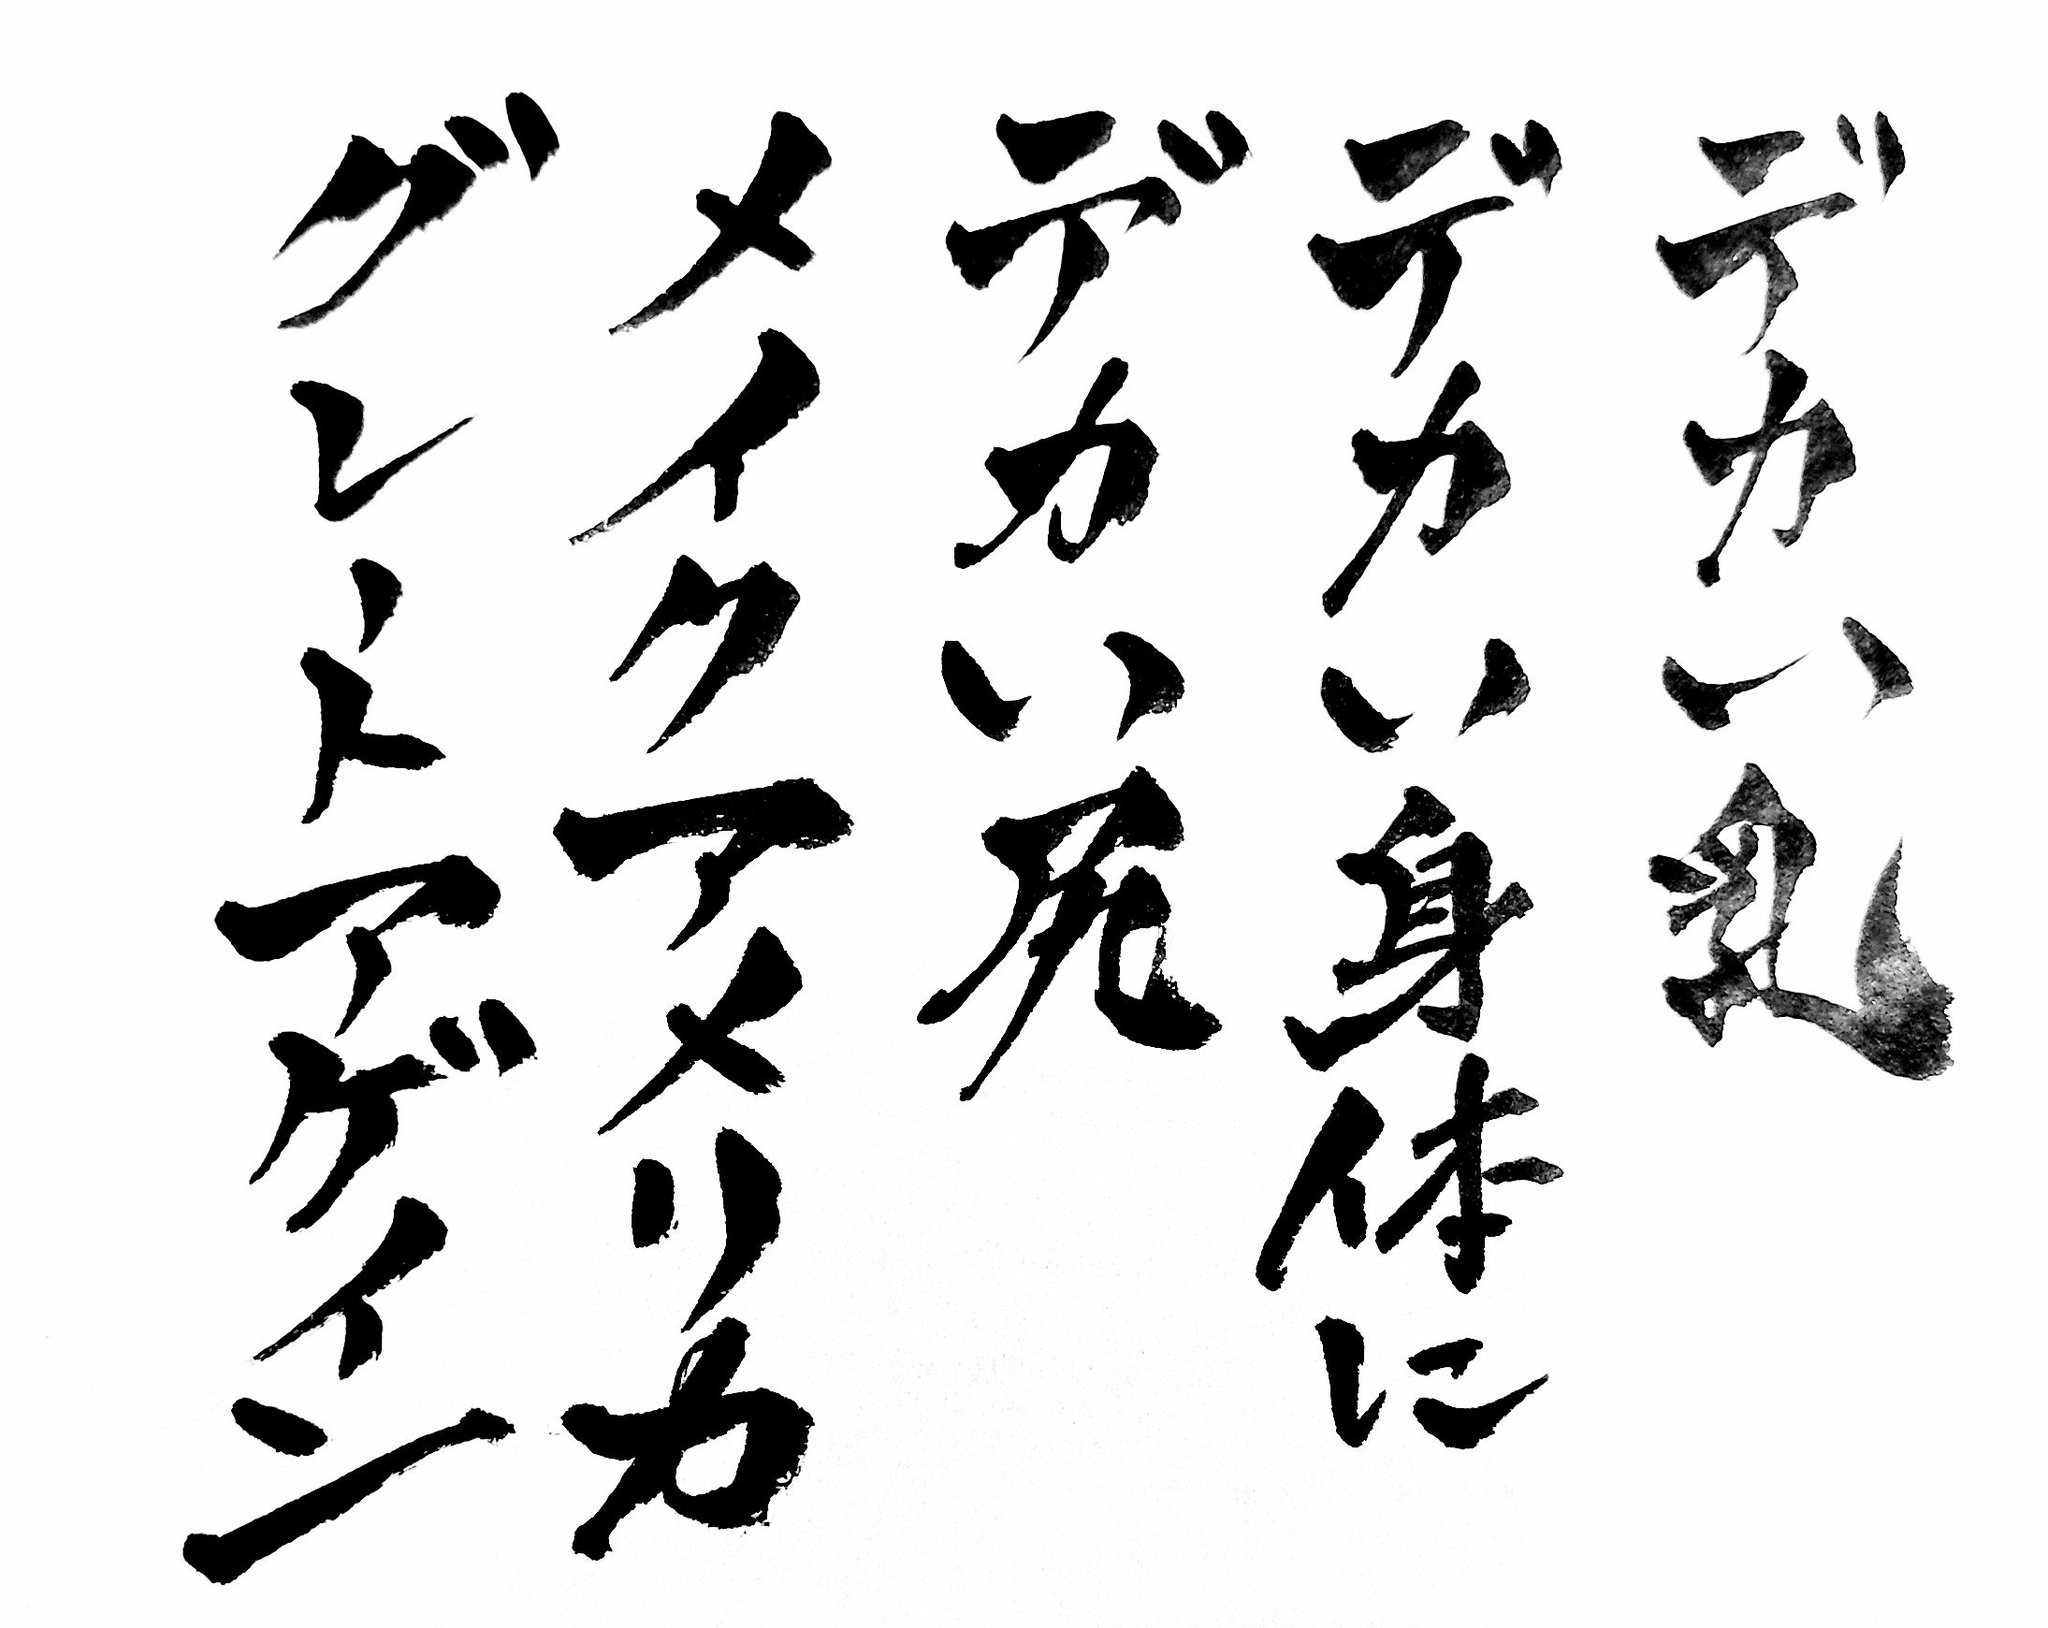 デカい乳
デカい身体に
デカい尻
メイクアメリカ
グレートアゲイン